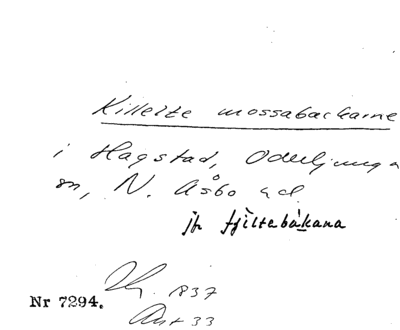 Killeite mossabackarne
i Hagstad, Oderljunga
sn, N. Åsbo hd.
jfr fjiltabåkana
Nr 7294.
837
33